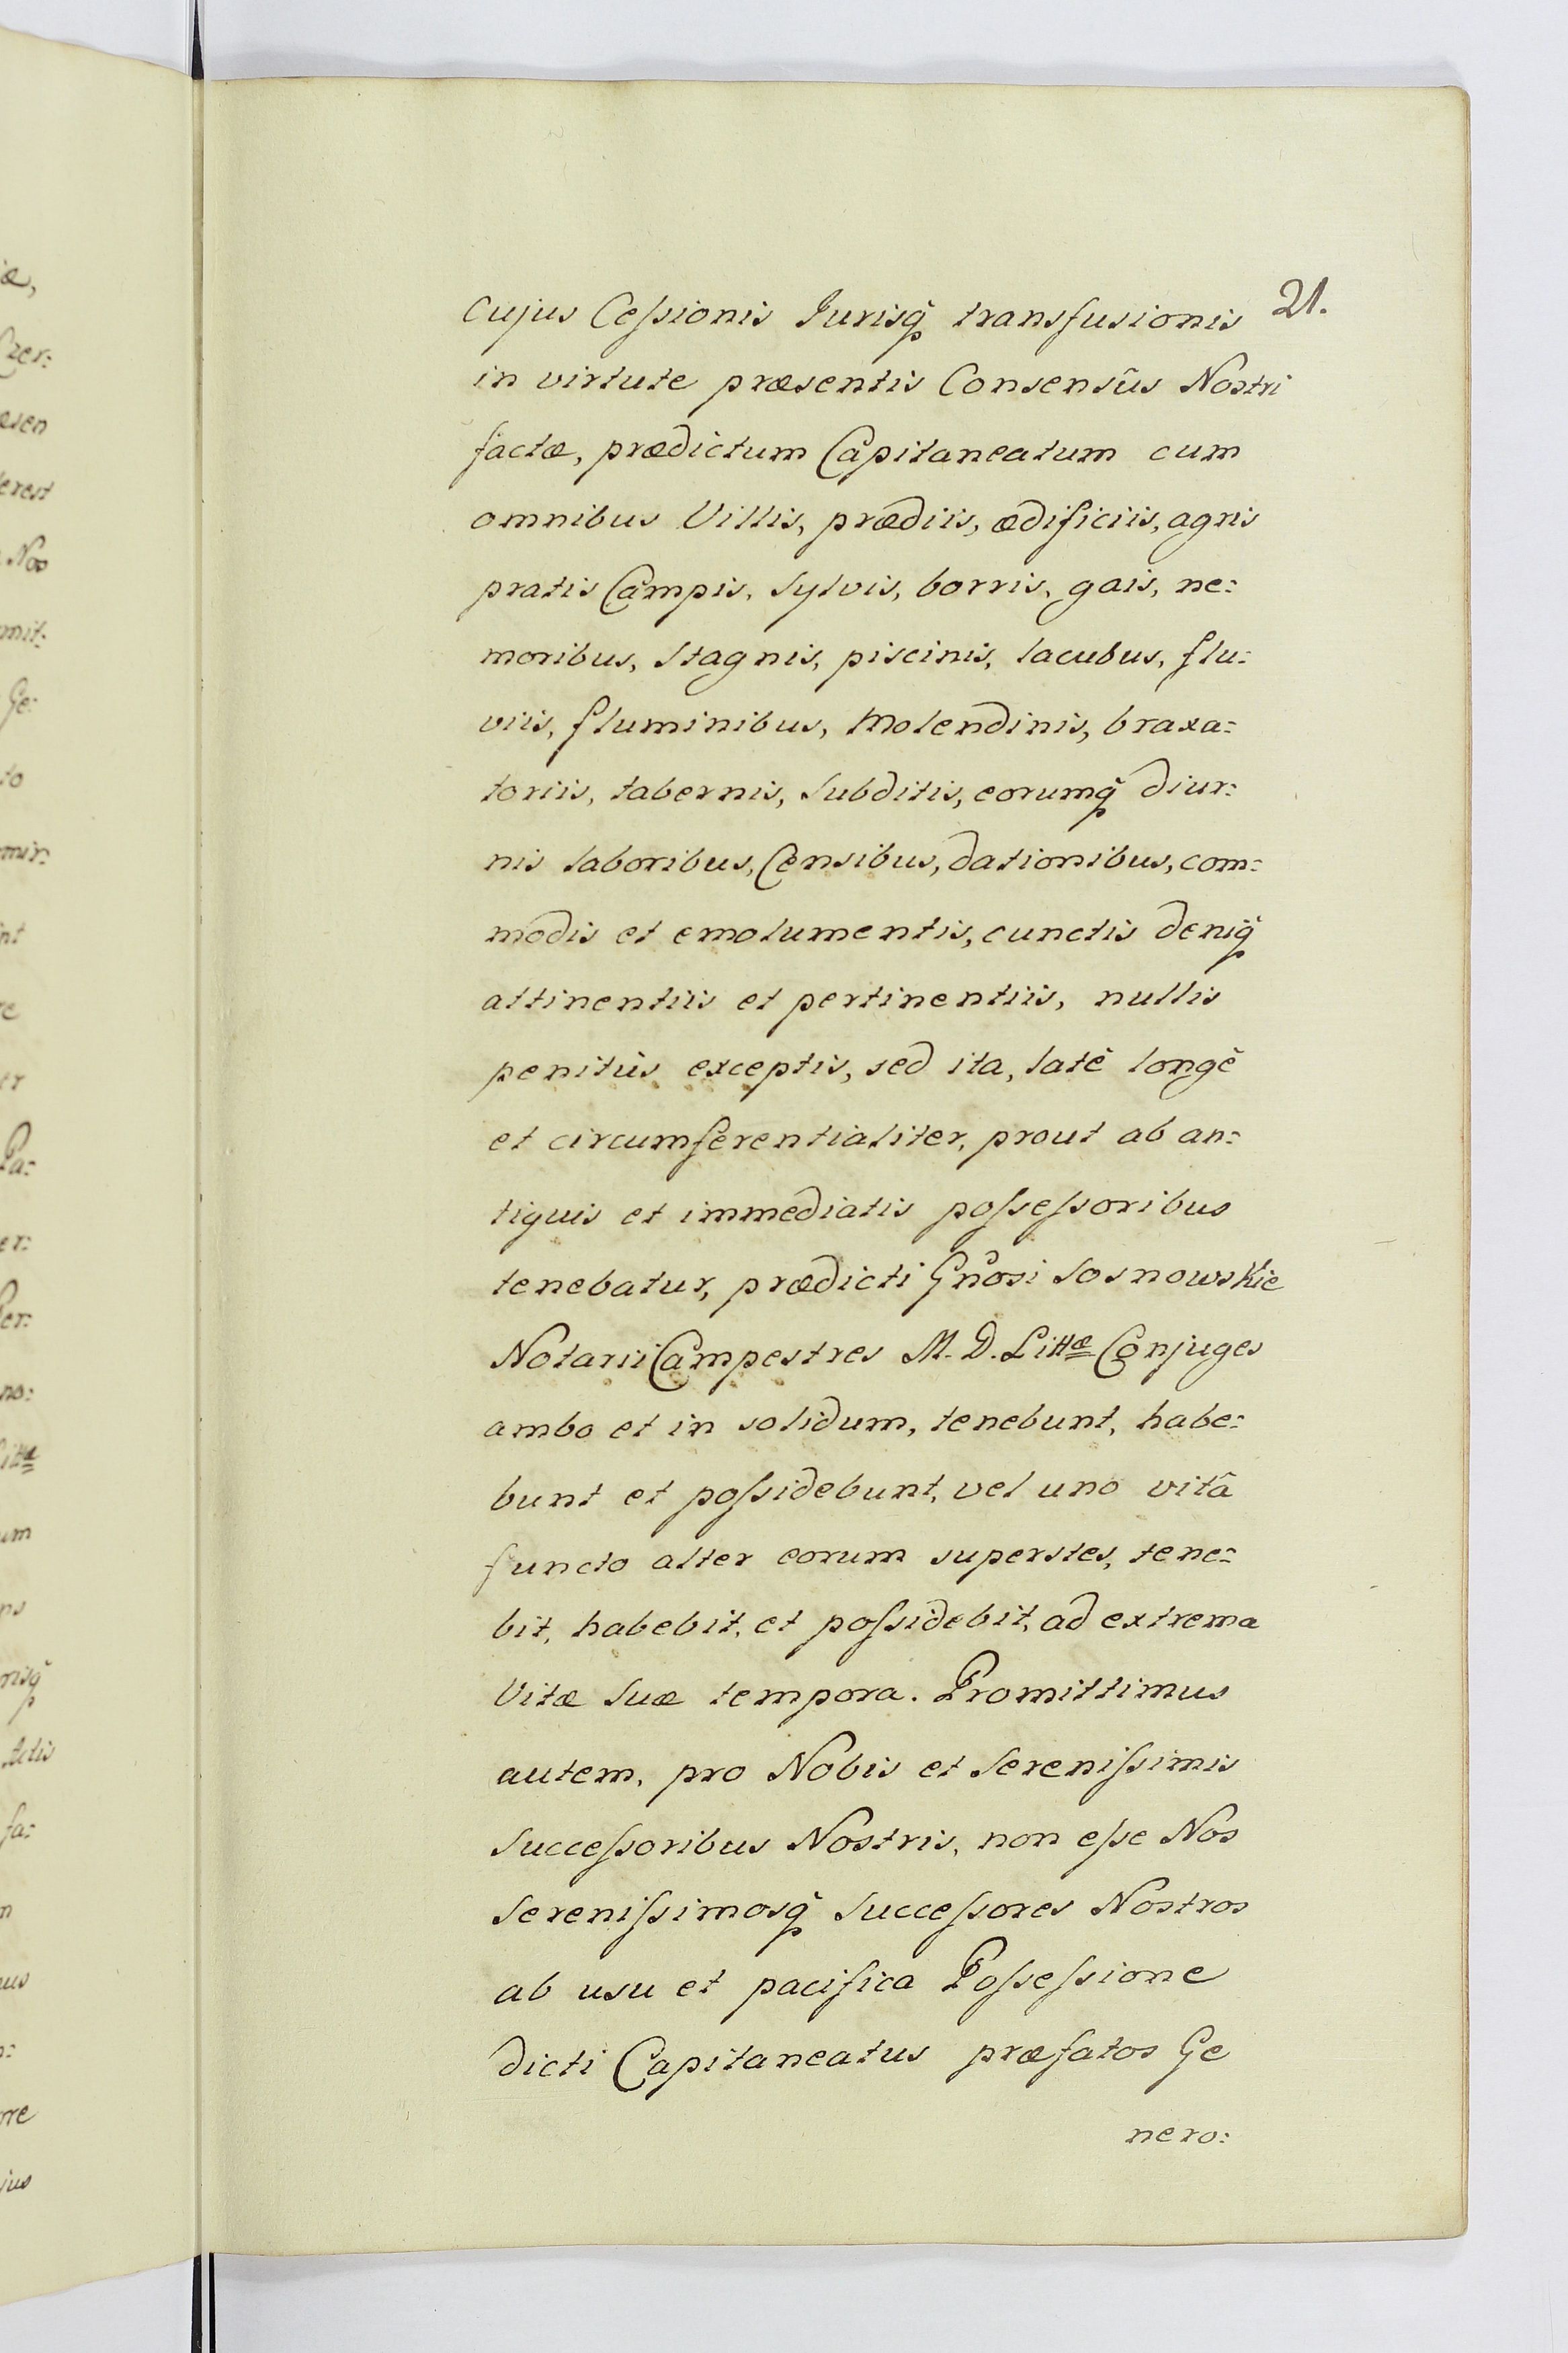 21.
cujus Ceſsionis Jurisq̃ transfusionis
in virtute præsentis Consensûs Nostri
factæ, prædictum Capitaneatum cum
omnibus Villis, prædiis, ædificiis, agris
pratis Campis, Sylvis, borris, gais, ne:
moribus, Stagnis, piscinis, lacubus, flu:
viis, fluminibus, Molendinis, braxa:
toriis, tabernis, Subditis, eorumq̃ diur:
nis laboribus, Censibus, dationibus, com:
modis et emolumentis, cunctis deniq̃
attinentiis et pertinentiis, nullis
penitùs exceptis, sed ita, latè longè
et circumferentialiter, prout ab an:
tiquis et immediatis poſseſsoribus
tenebatur, prædicti Gñosi Sosnowskie
Notarii Campestres M. D. Littæ Conjuges
ambo et in solidum, tenebunt, habe:
bunt et poſsidebunt, vel uno vitâ
functo alter eorum superstes, tene:
bit, habebit, et poſsidebit, ad extrema
Vitæ Suæ tempora. Promittimus
autem, pro Nobis et Sereniſsimis
Succeſsoribus Nostris, non eſse Nos
Sereniſsimosq̃ Succeſsores Nostros
ab usu et pacifica Poſseſsione
dicti Capitaneatus præfatos Ge
nero: